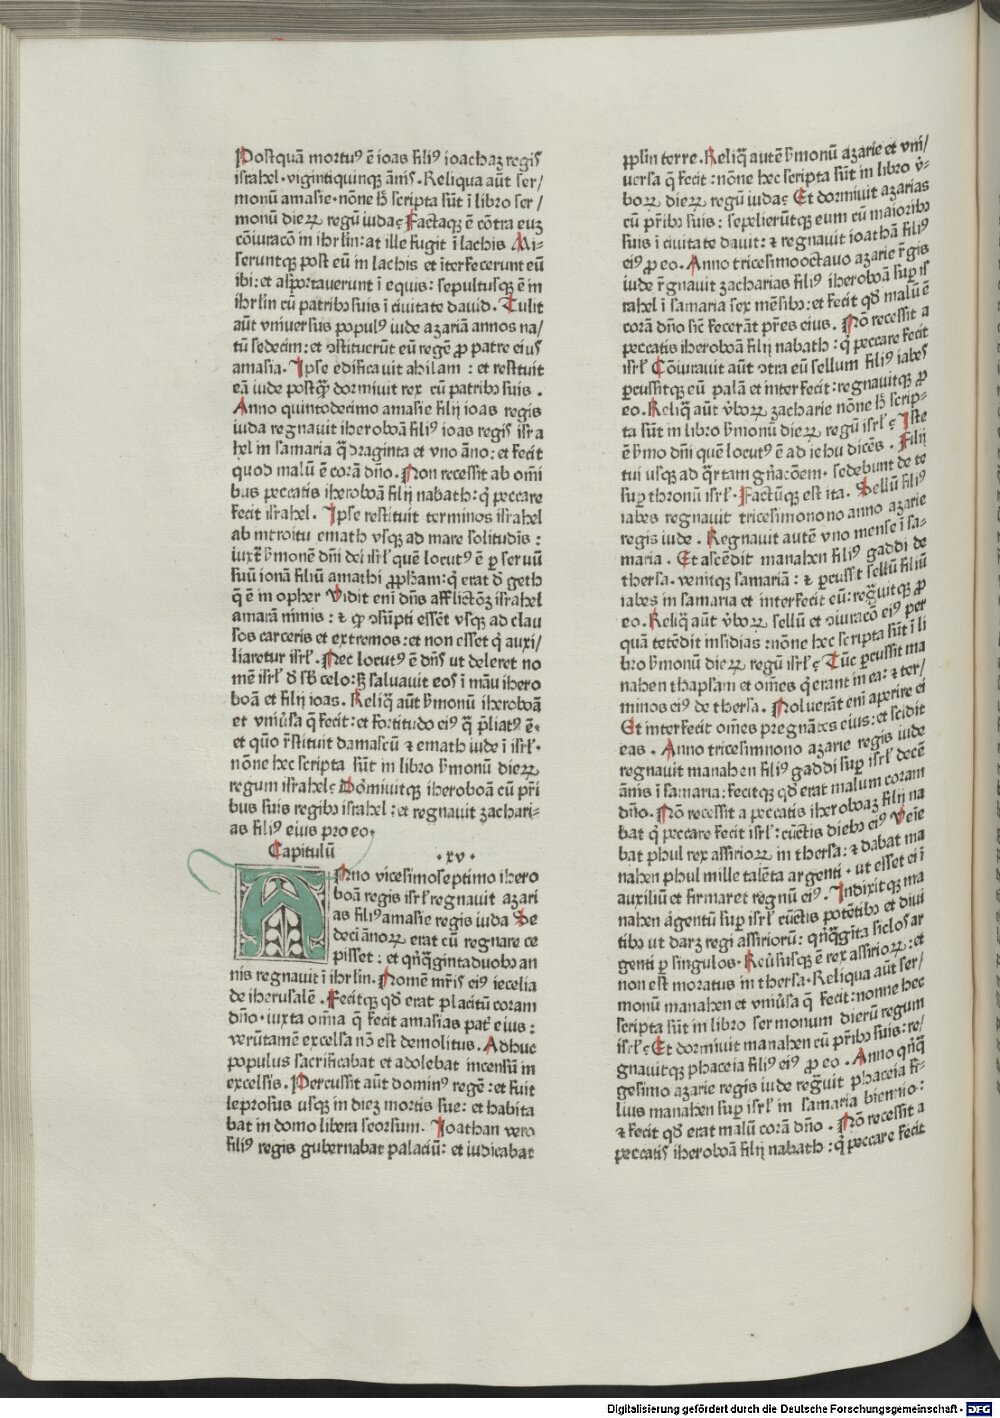 Postquā mortuꝰ ē ioas filiꝰ ioachaz regis
israhel · vigintiquinqꝫ ānis . Reliqua aūt ser/
monū amasie · nōne hͦ scripta sūt ī libro ser/
monū dieꝝ regū iuda? Factaqꝫ ē cōtra euꝫ
cōiuracō in ihrlm : at ille fugit ī lachis Mi-
seruntqꝫ post eū in lachis et īterfecerunt eū
ibi : et asportauerunt ī equis : sepultusqꝫ ē in
ihrlm cū patribꝫ suis ī ciuitate dauid . Tulit
aūt vniuersus populꝰ iude azariā annos na/
tū sedecim : et ↄstituerūt eū regē ꝓ patre eius
amasia . Ipse edificauit ahilam : et restituit
eā iude postꝙ̄ dormiuit rex cū patribꝫ suis .
Anno quintodecimo amasie filij ioas regis
iuda regnauit iheroboā filiꝰ ioas regis isra
hel in samaria q̄draginta et vno āno : et fecit
quod malū ē corā dño . Non recessit ab omī
bus peccatis iheroboā filij nabath : q̇ peccare
fecit israhel . Ipse restituit terminos israhel
ab introitu emath vsqꝫ ad mare solitudīs :
iuxꝉ ẜmonē dn̄i dei isrł quē locutꝰ ē ꝑ seruū
suū ionā filiū amathi ꝓpham : q̇ erat d̄ geth
q̄ ē in opher Vidit enī dn̄s afflictōꝫ israhel
amarā nimis : ⁊ ꝙ ↄsūpti essēt vsqꝫ ad clau
sos carceris et extremos : et non esset q̇ auxi/
liaretur isrł . Nec locutꝰ ē dn̄s ut deleret no
mē isrł d̄ sb̄ celo : sꝫ saluauit eos ī māu ihero
boā et filij ioas . Reliq̄ aūt ẜmonū iheroboā
et vniūsa q̄ fecit : et fortitudo eiꝰ q̄ p̄liatꝰ ē ·
et quō r̄stituit damascū ⁊ emath iude ī isrł ·
nōne hec scripta sūt in libro ẜmonū dieꝝ
regum israhel? Dormiuitqꝫ iheroboā cū pr̄i
bus suis regibꝫ israhel : et regnauit zachari-
as filiꝰ eius pro eo ,
Capitulū · xv ·
Anno vicesimoseptimo ihero
boā regis isrł regnauit azari
as filiꝰ amasie regis iuda Se
decī ānoꝝ erat cū regnare ce
pisset : et qn̄q̄ginta duobꝫ an
nis regnauit ī ihrlm . Nomē mr̄is eiꝰ iecelia
de iherusalē . Fecitqꝫ qd̄ erat placitū coram
dño · iuxta om̄ia q̄ fecit amasias pat̄ eius :
verūtamē excelsa nō est demolitus . Adhuc
populus sacrificabat et adolebat incensū in
excelsis . Percussit aūt dominꝰ regē : et fuit
leprosus usqꝫ in dieꝫ mortis sue : et habita
bat in domo libera seorsum . Ioathan vero
filiꝰ regis gubernabat palaciū : et iudicabat
ppl̄m terre . Reliq̄ autē ẜmonū azarie et vni/
uersa q̄ fecit : nōne hec scripta sūt in libro v̇-
boꝝ dieꝝ regū iuda? Et dormiuit azarias
cū pr̄ibꝫ suis : sepelierūtqꝫ eum cū maioribꝫ
suis ī ciuitate dauit : ⁊ regnauit ioathā filiꝰ
eiꝰ ꝓ eo . Anno tricesimooctauo azarie r̄gis
iude r̄gnauit zacharias filiꝰ iheroboā suꝑ is
rahel ī samaria sex mēsibꝫ : et fecit qd̄ malū ē
corā dño sic̄ fecerāt pr̄es eius . Nō recessit a
peccatis iheroboā filij nabath : q̇ peccare fecit
isrł Cōiurauit aūt ↄtra eū sellum filiꝰ iabes
ꝑcussitqꝫ eū palā et interfecit : regnauitqꝫ ꝓ
eo . Reliq̄ aūt v̇boꝝ zacharie nōne hͦ scrip-
ta sūt in libro ẜmonū dieꝝ regū isrł? Iste
ē ẜmo dn̄i quē locutꝰ ē ad iehu dicēs . Filij
tui usqꝫ ad q̄rtam gn̄acōem · sedebunt de te
suꝑ thronū isrł . Factūqꝫ est ita . Sellū filiꝰ
iabes regnauit tricesimonono anno azarie
regis iude . Regnauit autē vno mense ī sa-
maria . Et ascēdit manahen filiꝰ gaddi de
thersa . venitqꝫ samariā : ⁊ ꝑcussit sellū filiū
iabes in samaria et interfecit eū : reg̃uitqꝫ ꝓ
eo . Reliq̄ aūt v̇boꝝ sellū et ↄiuracō eiꝰ per
quā tetēdit insidias : nōne hec scripta sūt ī li
bro ẜmonū dieꝝ regū isrł? Tūc ꝑcussit ma
nahen thapsam et om̄es q̇ erant in ea : ⁊ ter/
minos eiꝰ de thersa . Noluerāt enī aperire ei
Et interfecit om̄es pregnātes eius : et scidit
eas . Anno tricesimnono azarie regis iude
regnauit manahen filiꝰ gaddi suꝑ isrł decē
ānis ī samaria : fecitqꝫ qd̄ erat malum coram
dño . Nō recessit a peccatis iheroboaꝫ filij na
bat q̇ peccare fecit isrł : cūctis diebꝫ eiꝰ Veīe
bat phul rex assirioꝝ in thersa : ⁊ dabat ma
nahen phul mille talēta argenti · ut esset ei ī
auxiliū et firmaret regnū eiꝰ . Indixitqꝫ ma
nahen āgentū suꝑ isrł cūctis potētibꝫ et diui
tibꝫ ut darꝫ regi assiriorū : qn̄q̄gīta siclos ar
genti ꝑ singulos . Reūsusqꝫ ē rex assirioꝝ : et
non est moratus in thersa · Reliqua aūt ser/
monū manahen et vniūsa q̄ fecit : nonne hec
scripta sūt in libro sermonum dierū regum
isrł? Et dormiuit manahen cū pr̄ibꝫ suis : re/
gnauitqꝫ phaceia filiꝰ eiꝰ ꝓ eo . Anno qn̄q̄
gesimo azarie regis iude reg̃uit phaceia fi-
lius manahen suꝑ isrł in samaria biennio :
⁊ fecit qd̄ erat malū corā dño . Nō recessit a
peccatis iheroboā filij nabath : q̇ peccare fecit
Digitalisierung gefördert durch die Deutsche Forschungsgemeinschaft - DFG